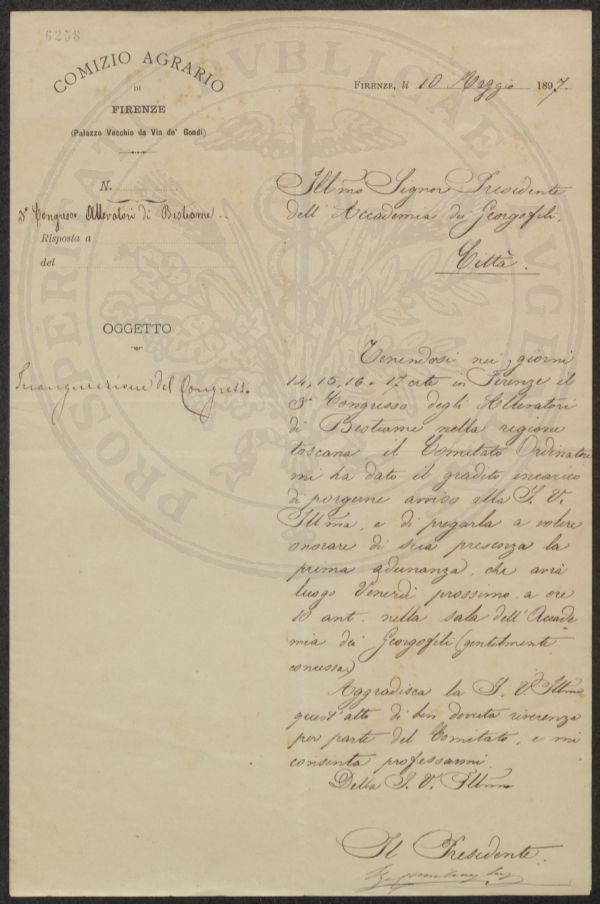 6258
COMIZIO AGRARIO
DI
FIRENZE
(Palazzo Vecchio da Via de' Gondi)
N.
3º Congresso Allevatori di Bestiame
Risposta a
del
OGGETTO
Inaugurazione del Congresso
FIRENZE, li 10 Maggio 1897.
Illmo Signor Presidente
dell'Accademia dei Georgofili.
Città.
Tenendosi nei giorni
14, 15, 16 e 17 corte in Firenze il
3º Congresso degli Allevatori
di Bestiame nella regione
toscana il Comitato Ordinatore
mi ha dato il gradito incarico
di porgerne avviso alla S. V.
Illma, e di pregarla a volere
onorare di sua presenza la
prima adunanza, che avrà
luogo Venerdì prossimo a ore
10 ant. nella sala dell'Accade
mia dei Georgofili (gentilmente
concessa)
Aggradisca la S. V. Illma
quest'atto di ben dovuta riverenza
per parte del Comitato, e mi
consenta professarmi.
Della S. V. Illma
Il Presidente.
PRO SPERITATI PVBLICAE AVGENDAE